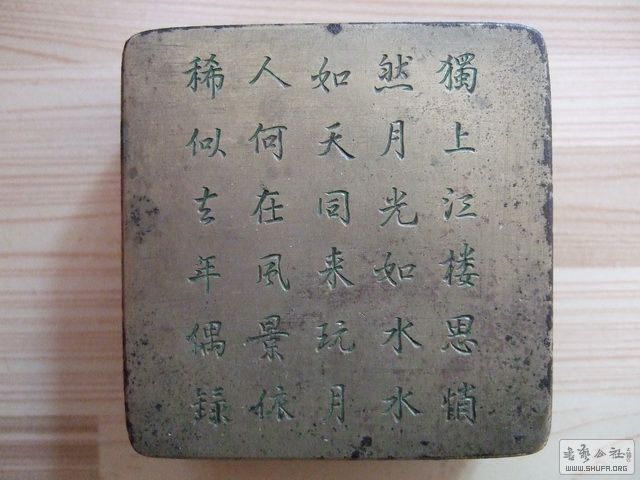 獨上江楼思悄
然月光如水水
如天同来玩月
人何在風景依
稀似去年偶録
书艺公社
WWW.SHUFA.ORG